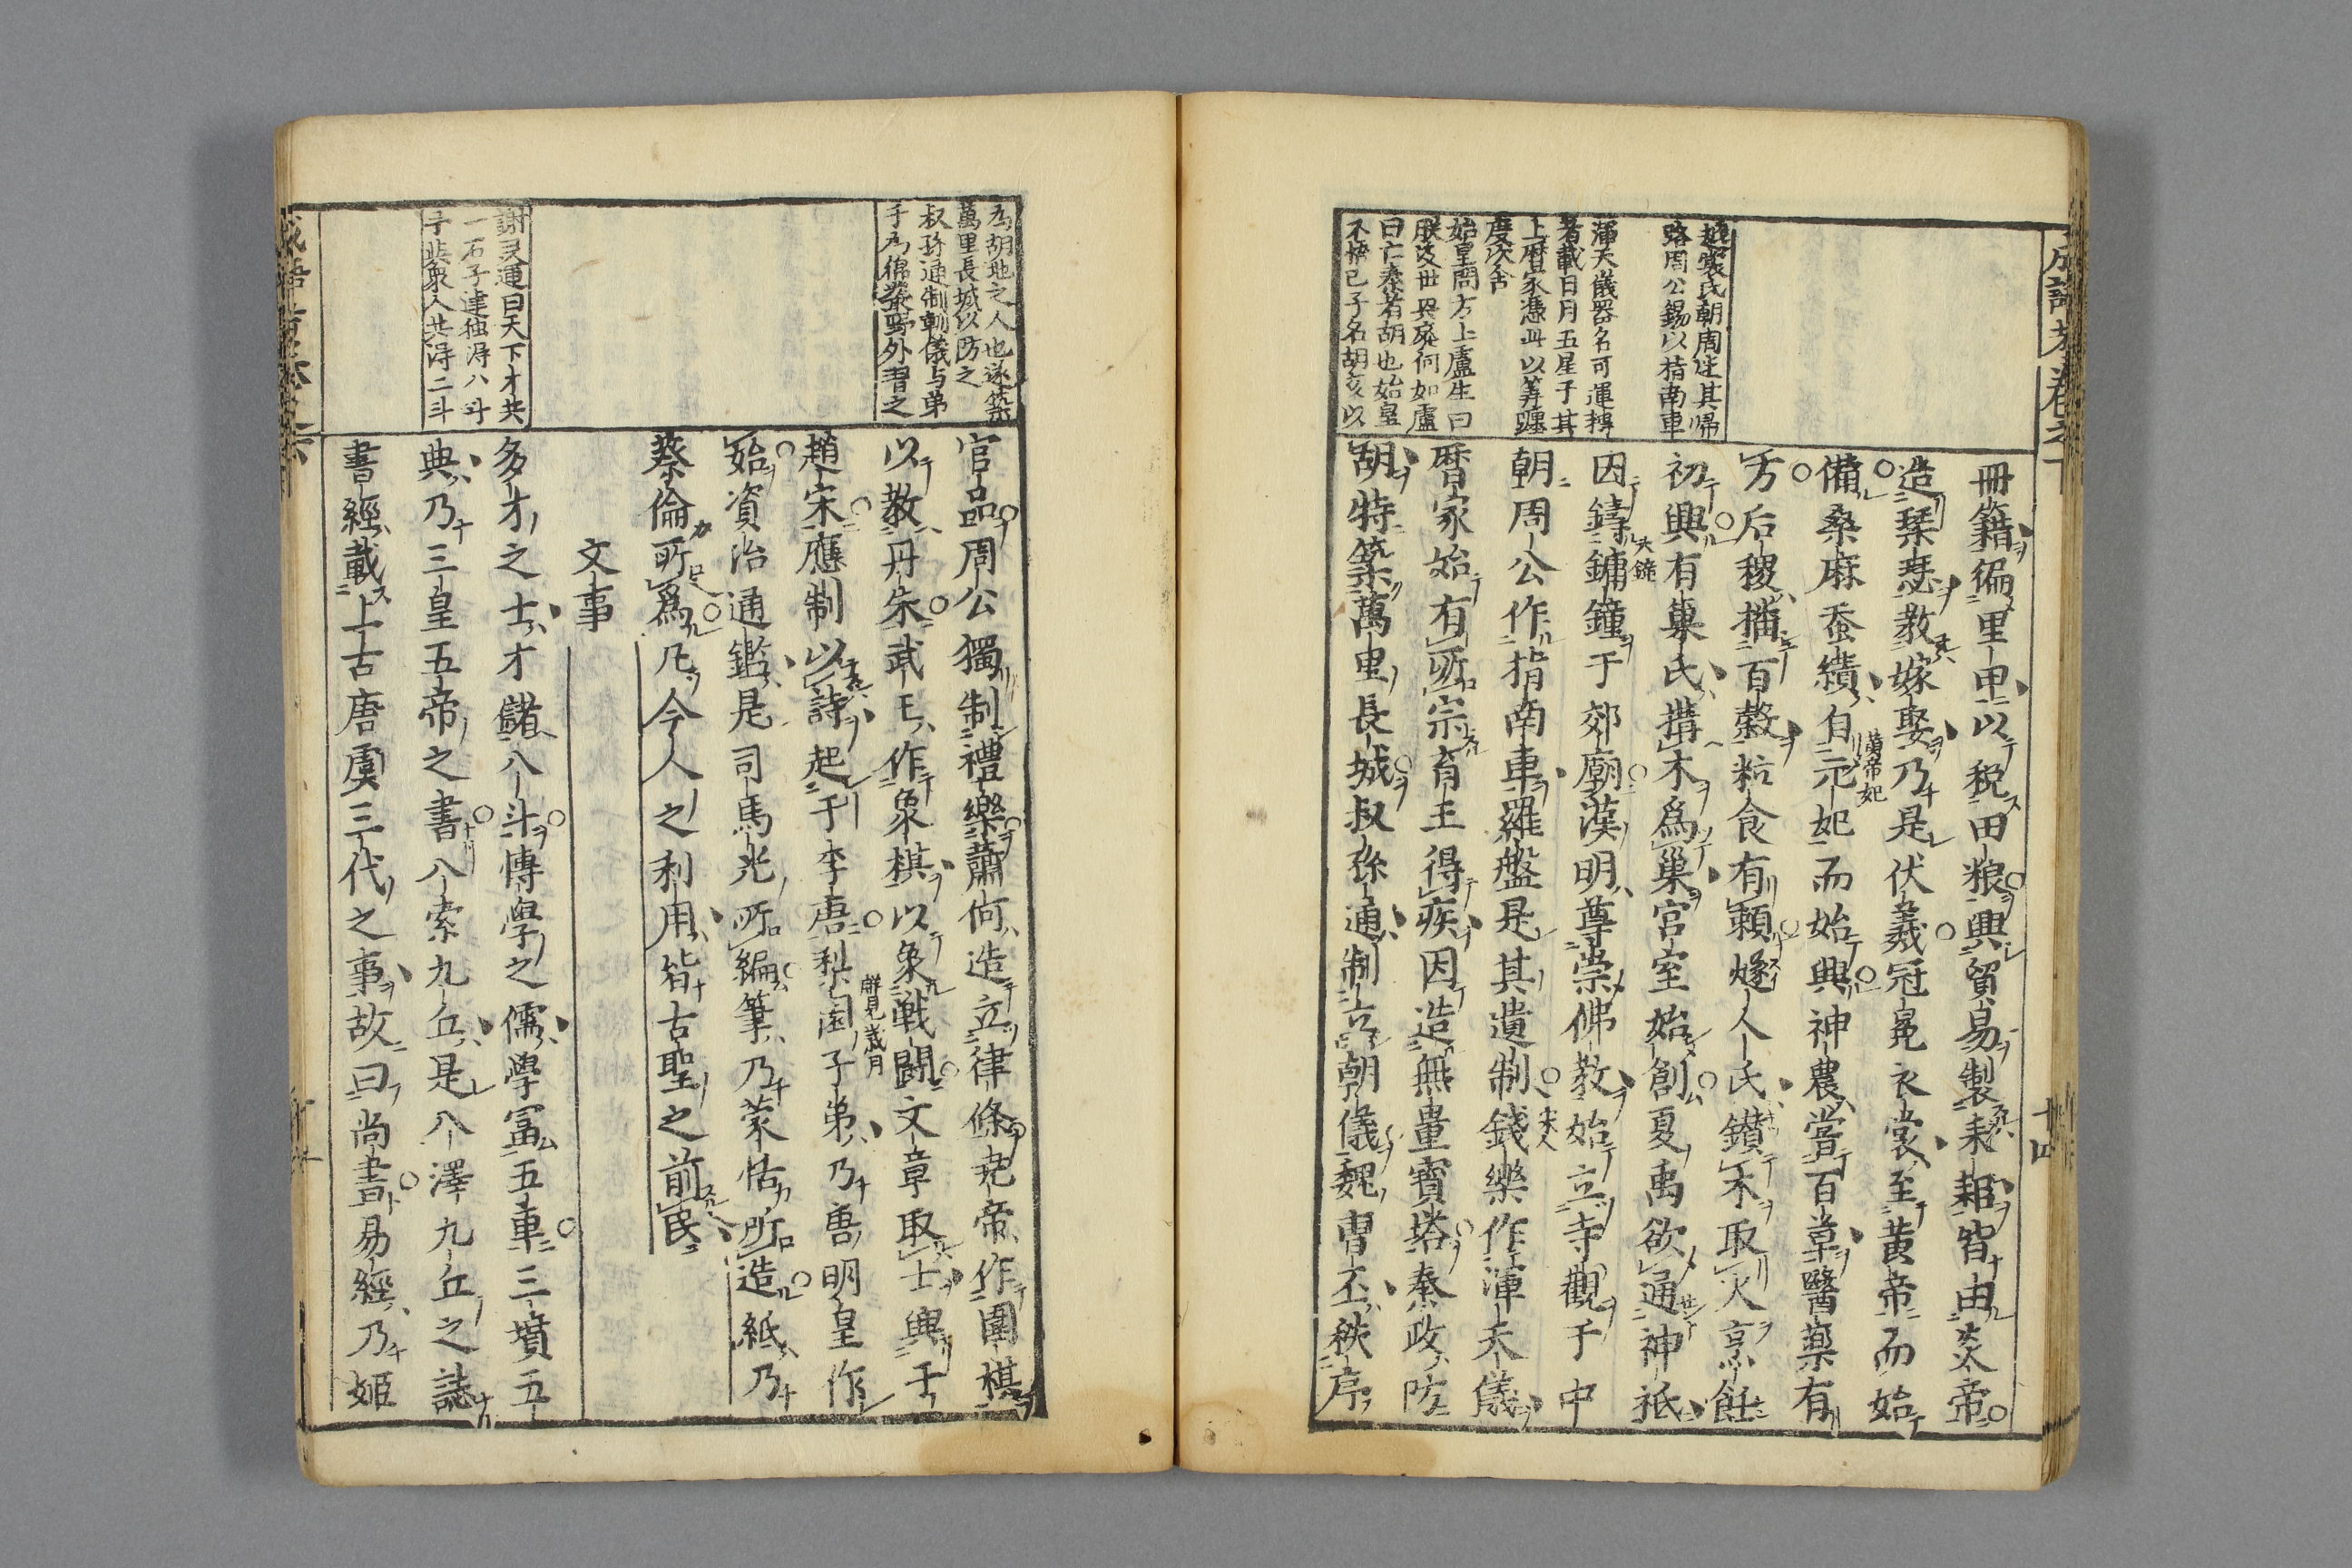 越裳氏朝周迷其帰
路周公錫以指南車
渾天儀器名可運轉
者載日月五星于其
上暦家憑此以筭躔
度次舎
始皇問方士盧生曰
朕後世興廃何如盧
曰亡秦者胡也始皇
不悟已子名胡亥以
冊籍徧里甲以税田粮興貿易製耒耜皆由炎帝
造琴瑟教嫁娶乃是伏羲冠冕衣裳至黄帝而始
備桑麻蚕績自元妃黄帝妃而始興神農嘗百草醫藥有
方后稷播百穀粒食有頼燧人氏鑚木取火烹飪
初興有巢氏搆木爲巢宮室始創夏禹欲通神祇
因鑄鏞大鐘鐘于郊廟漢明尊崇佛教始立寺觀于中
朝周公作指南車羅盤是其遺制錢樂宋人作渾天儀
暦家始有所宗育王得疾因造無量寳塔秦政防
胡特築萬里長城叔孫通制立朝儀魏曹丕秩序
為胡地之人也遂築
萬里長城以防之
叔孫通制朝儀与弟
子為綿蕞野外習之
謝灵運曰天下才共
一石子建独得八斗
予與衆人共得二斗
官品周公獨制禮樂蕭何造立律條尭帝作圍棋
以教丹朱武王作象棋以象戦闘文章取士興于
趙宋應制以詩起于李唐梨園子弟詳見歳月乃唐明皇作
始資治通鑑是司馬光所編筆乃蒙恬所造紙乃
蔡倫所爲凡今人之利用皆古聖之前民
文事
多才之士才儲八斗博學之儒學冨五車三墳五
典乃三皇五帝之書八索九丘是八澤九丘之誌
書經載上古唐虞三代之事故曰尚書易經乃姫